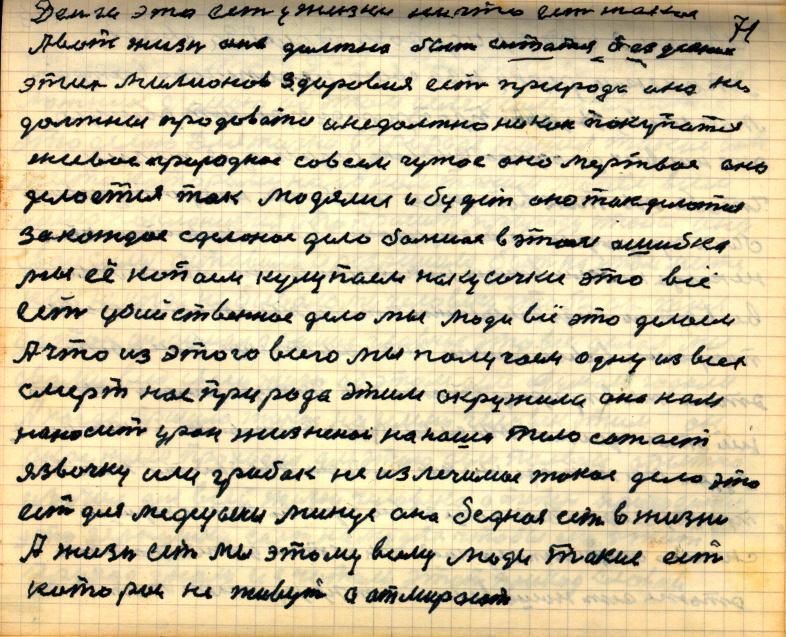 Деньги это ест у жизни ничто ест такое 71
А вот жизн она должна быт
этих милионов Здоровия ест природа она не
должны продовати и недолжно никак покупатся
живое природное совсем чужое оно мертвое оно
делоется так людями и будит оно так делотся
за каждое сделоное дело болшоя в этом ошибка
мы её копаем кулупаем накусочки это всё
ест убийственное дело мы люди всё это делоем
А что из этого всего мы получаем одну из всех
смерт нас природа этим окружила она нам
наносит урон жизненои на наше тело сожает
язвочку или грибок не излечимое такое дело это
ест для медецыны минус она бедноя ест в жизни
А жизн ест мы этому всему люди такие ест
которые не живут а отмирают